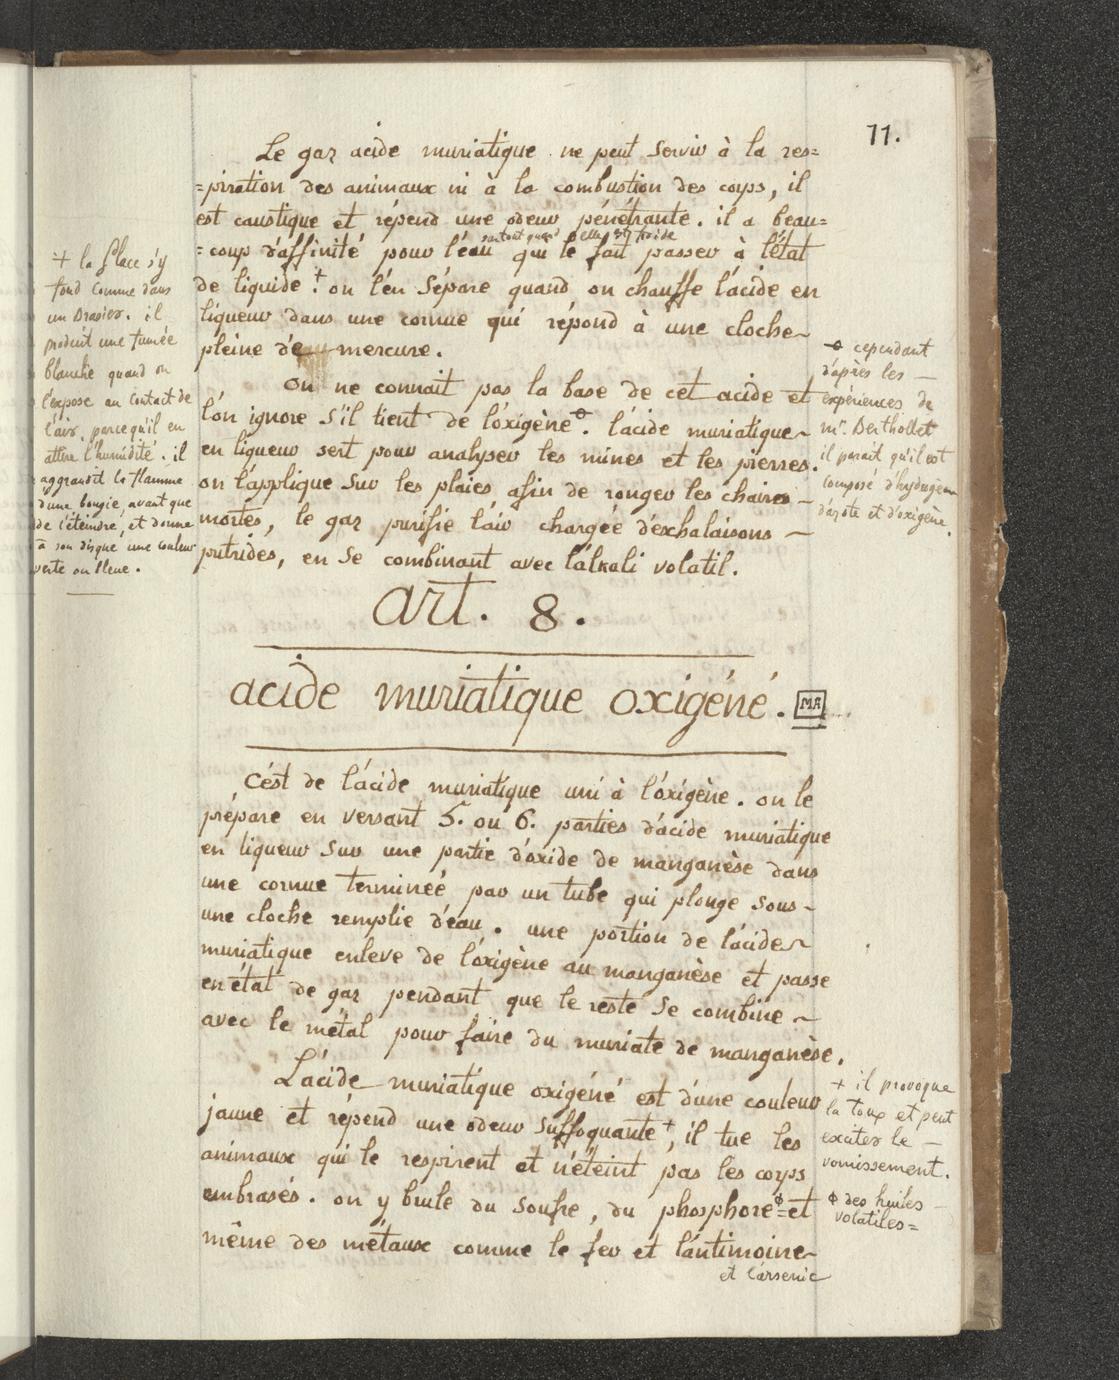 11.
Le gaz acide muriatique ne peut servir à la res=
=piration des animaux ni à la combustion des corps, il
est caustique et répend une odeur pénétrante. il a beau=
surtout quand elle est froide
=coup d'affinité pour l'éau qui le fait passer à l'état
de liquide.+ on l'én Sépare quand on chauffe l'acide en
liqueur dans une cornue qui répond à une cloche
pleine de mercure.
On ne connait pas la base de cet acide et
l'ón ignore s'il tient de l'óxigène ⊖. l'ácide muriatique
en liqueur sert pour analyser les mines et les pierres.
on l'ápplique sur les plaies afin de ronger les chaires
mortes, le gaz purifie l'áir chargéé d'éxhalaisons
putridés, en se combinant avec l'álkali volatil.
+ la glace s'y
fond comme dans
un Brasier. il
produit une fumée
blanche quand on
l'expose au contact de
l'air, parcequ'il en
attire l'humidité. il
aggrandit la flamme
d'une bougie, avant que
de l'éteindre, et donne
à son disque une couleur
verte ou bleue.
⊖ cependant
d'après les
expériences de
mr. Berthollet
il parait qu'il est
composé d'hydrogène
d'azote et d'oxigène.
art. 8.
acide muriatique oxigéné. MA
C'ést de l'ácide muriatique uni à l'óxigène. on le
prépare en versant 5. ou 6. parties d'ácide muriatique
en liqueur sur une partie d'óxide de manganèse dans
une cornue terminéé par un tube qui plonge sous
une cloche remplie d'éau. une portion de l'ácide
muriatique enleve de l'óxigène au manganèse et passe
en état de gaz pendant que le reste se combine
avec le métal pour faire du muriate de manganèse.
L'ácide muriatique oxigéné est d'úne couleur
jaune et répend une odeur suffoquante+, il tue les
animaux qui le respirent et n'éteint pas les corps
embrasés. on y brule du soufre, du phosphore ϕ= et
même des métaux comme le fer et l'ántimoine
et l'arsenic
+ il provoque
la toux et peut
exciter le
vomissement.
ϕ des huiles
volatiles=